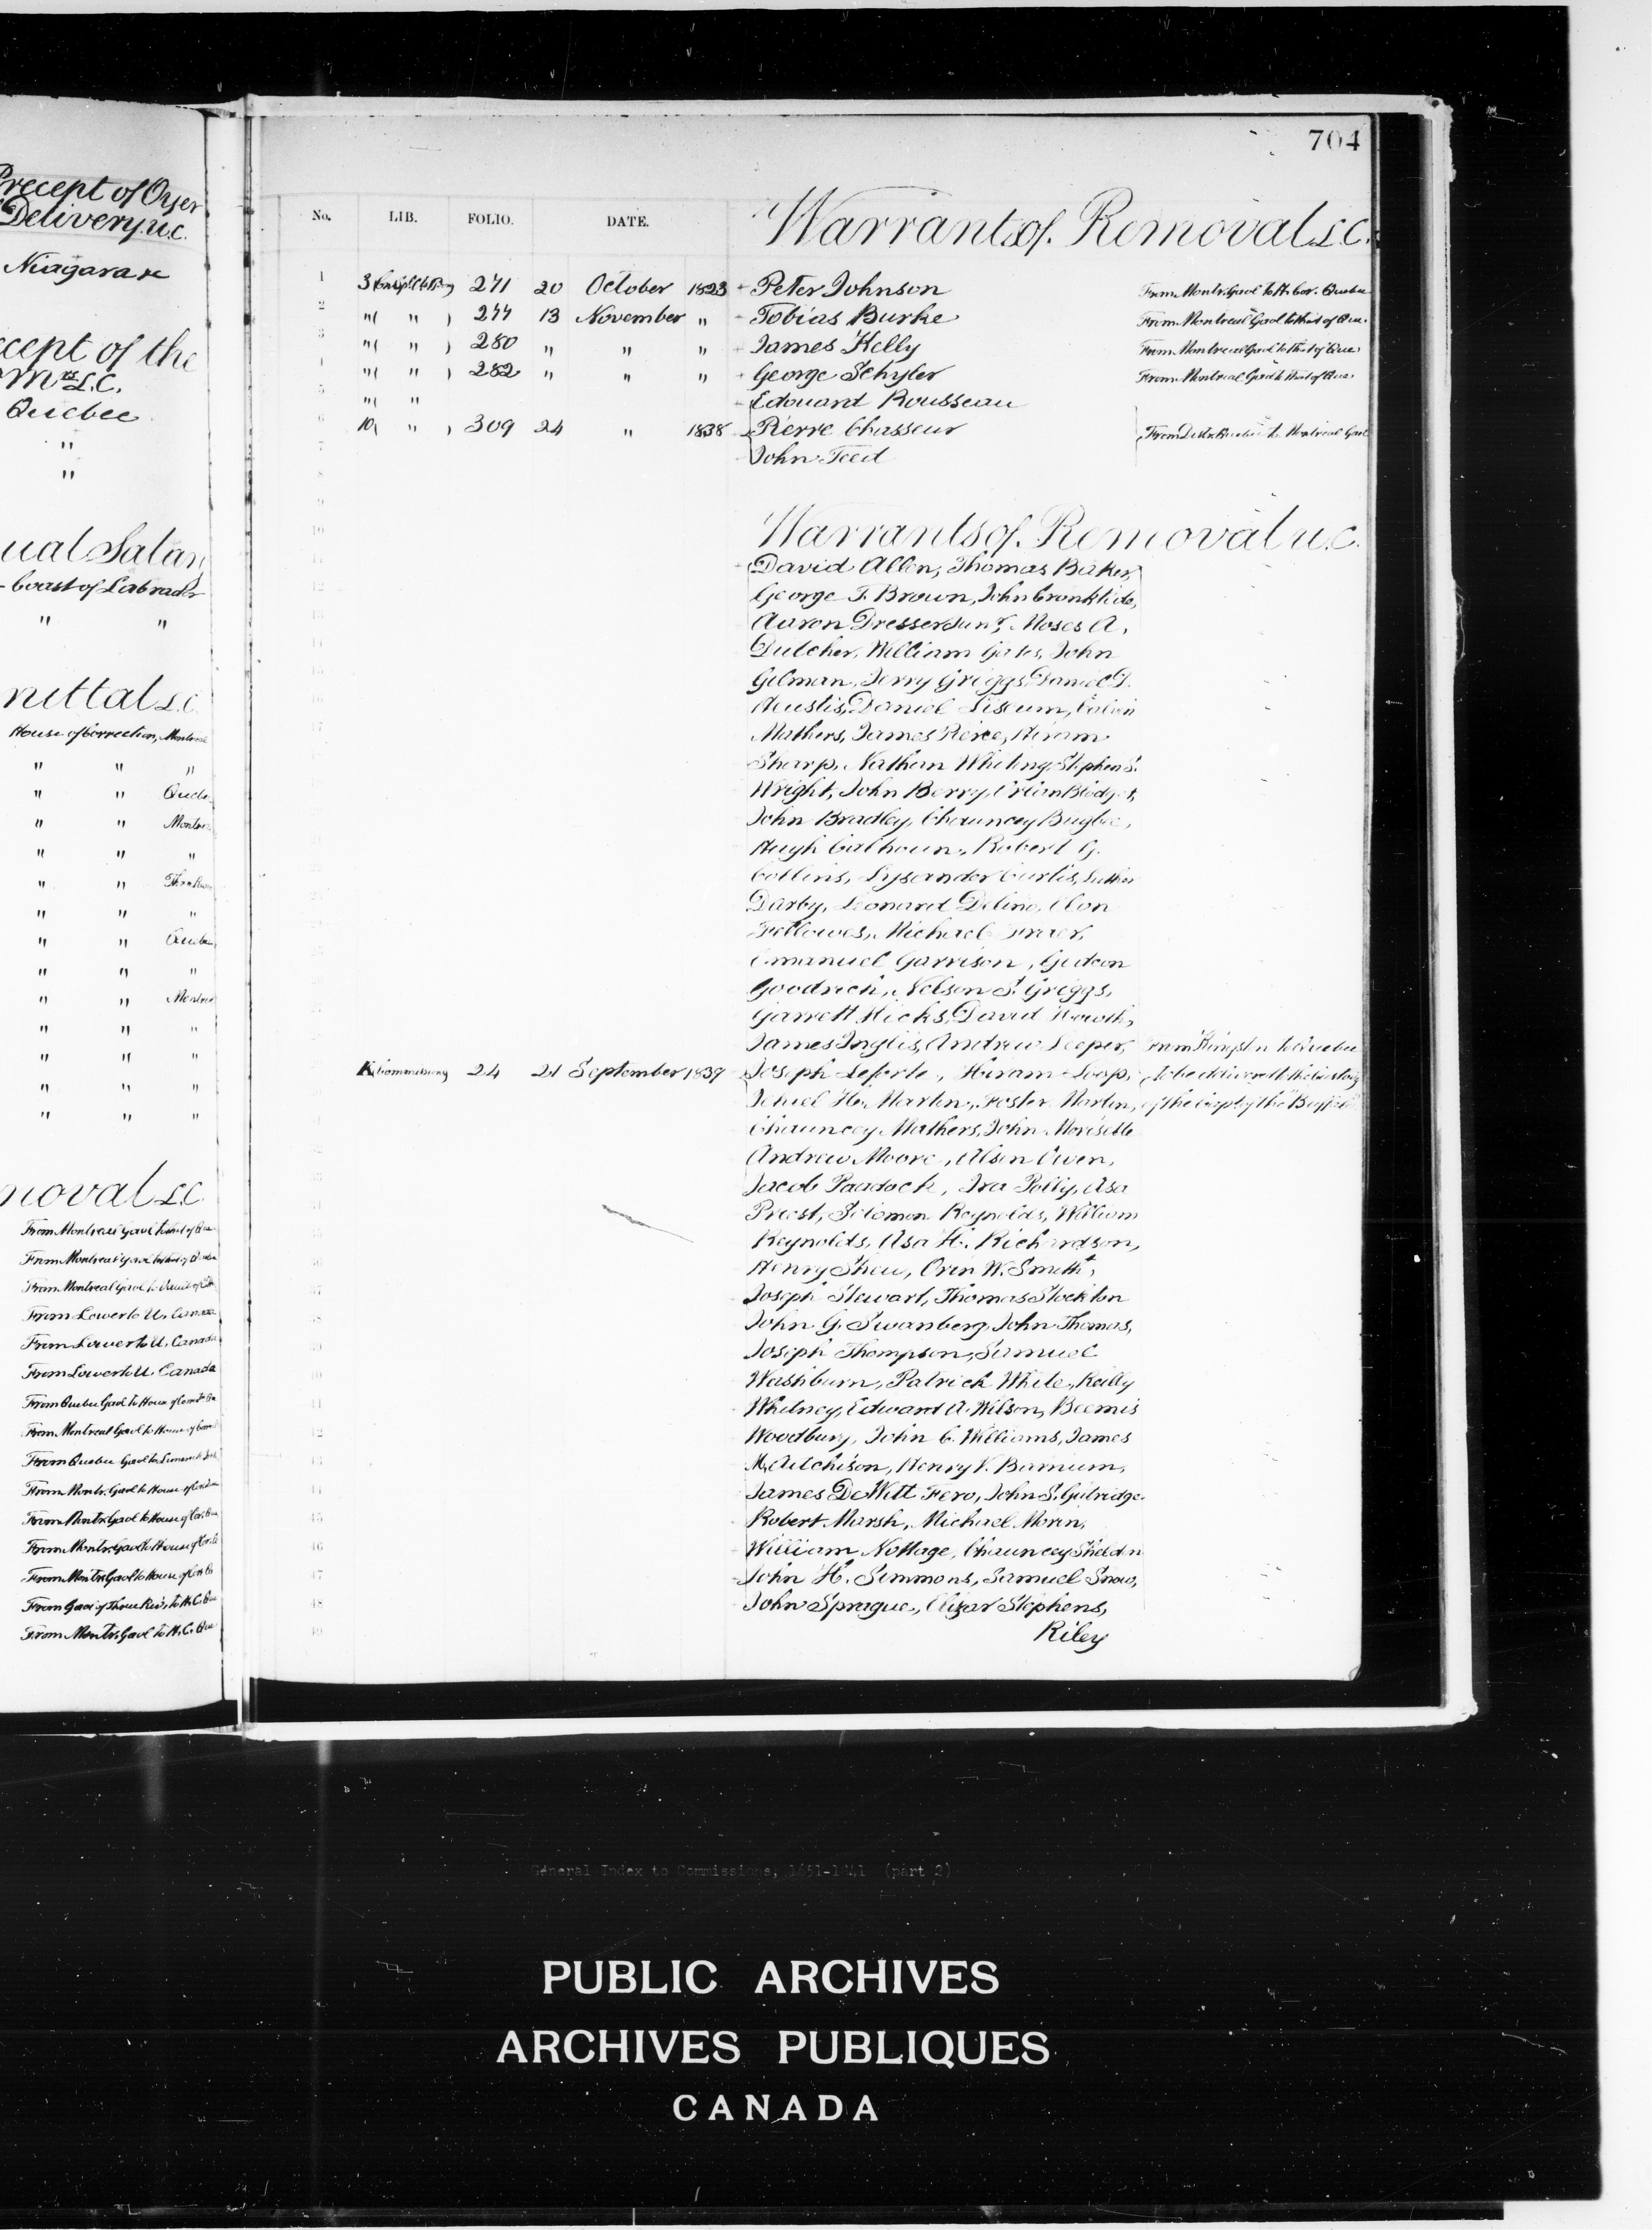 Precept of Oyer
Delivery. u.c.
Niagara &c
cept of the
L.C.
Quebec
"
"
ual Salary
Coast of Labrador
" "
mittal L.C.
House of Correction, Montreal
" " "
" " Quebec
" " Montreal
" " "
" "
" " "
" " Quebec
" " "
" " Montreal
" " "
" " "
" " "
" " "
moval L.C.
From Montreal Gaol to that of Que
From Montreal Gaol to that of Quebec
From Montreal Gaol to
From Lower to U. Canada
From Lower to U. Canada
From Lower to U. Canada
From Quebec Gaol to House of
From Montreal Gaol to House of
From Quebec Gaol to
From Montr. Gaol to House of
From Montr. Gaol to House of
From Montr. Gaol to House of
From Montr. Gaol to House of
From Gaol of Three Riv. to H.C. Que
From Montr. Gaol to H.C. Que
704
No. LIB. FOLIO. DATE. Warrants of Removal L.C.
1 3 271 20 October 1823 Peter Johnson From Montr. Gaol to H. Cor. Quebec
2 " ( " ) 277 13 November " Tobias Burke From Montreal Gaol to that of Que.
3 " ( " ) 280 " " " James Kelly From Montreal Gaol to that of Que.
4 " ( " ) 282 " " " George Schyler From Montreal Gaol to that of Que.
5 " ( " Edouard Rousseau
6 10 ( " ) 309 24 " 1838 Pierre Chasseur From Quebec to Montreal Gaol
7 John Teed
Warrants of Removal u.c.
David Allen, Thomas Baker,
George T. Brown, John Cronkhite,
Aaron Dresser Junr, Moses A.
Dutcher, William Gates, John
Gilman, Jerry Griggs, Daniel D.
Heustis, Daniel Liscum, Calvin
Mathers, James Pierce, Hiram
Sharp, Nathan Whiting, Stephen S.
Wright, John Berry, Orlin Blodget,
John Bradley, Chauncey Bugbee,
Hugh Calhoun, Robert G.
Collins, Lysander Curtis, Luther
Darby, Leonard Delino, Elon
Fellowes, Michael Fraer,
Emanuel Garrison, Gideon
Goodrich, Nelson S. Griggs,
Garrett Hicks, David Howth,
James Inglis, Andrew Leeper, From Kingston to Quebec
K Commissions 24 21 September 1839 Joseph Leforte, Hiram Loop, to be delivered to the custody
Jehiel H. Martin, Foster Martin, of the Capt. of the "Buffalo"
Chauncey Mathers, John Morisette
Andrew Moore, Alson Owen,
Jacob Paddock, Ira Polly, Asa
Priest, Solomon Reynolds, William
Reynolds, Asa H. Richardson,
Henry Shew, Orin W. Smith,
Joseph Stewart, Thomas Stockton
John G. Swanberg, John Thomas,
Joseph Thompson, Samuel
Washburn, Patrick White, Reilly
Whitney, Edward A. Wilson, Beemis
Woodbury, John C. Williams, James
M. Aitchison, Henry V. Barnum,
James De Witt Fero, John S. Gutridge.
Robert Marsh, Michael Morin,
William Nottage, Chauncey Sheldon
John H. Simmons, Samuel Snow,
John Sprague, Elizar Stephens,
Riley
General Index to Commissions, 1651-1841 (part 2)
PUBLIC ARCHIVES
ARCHIVES PUBLIQUES
CANADA